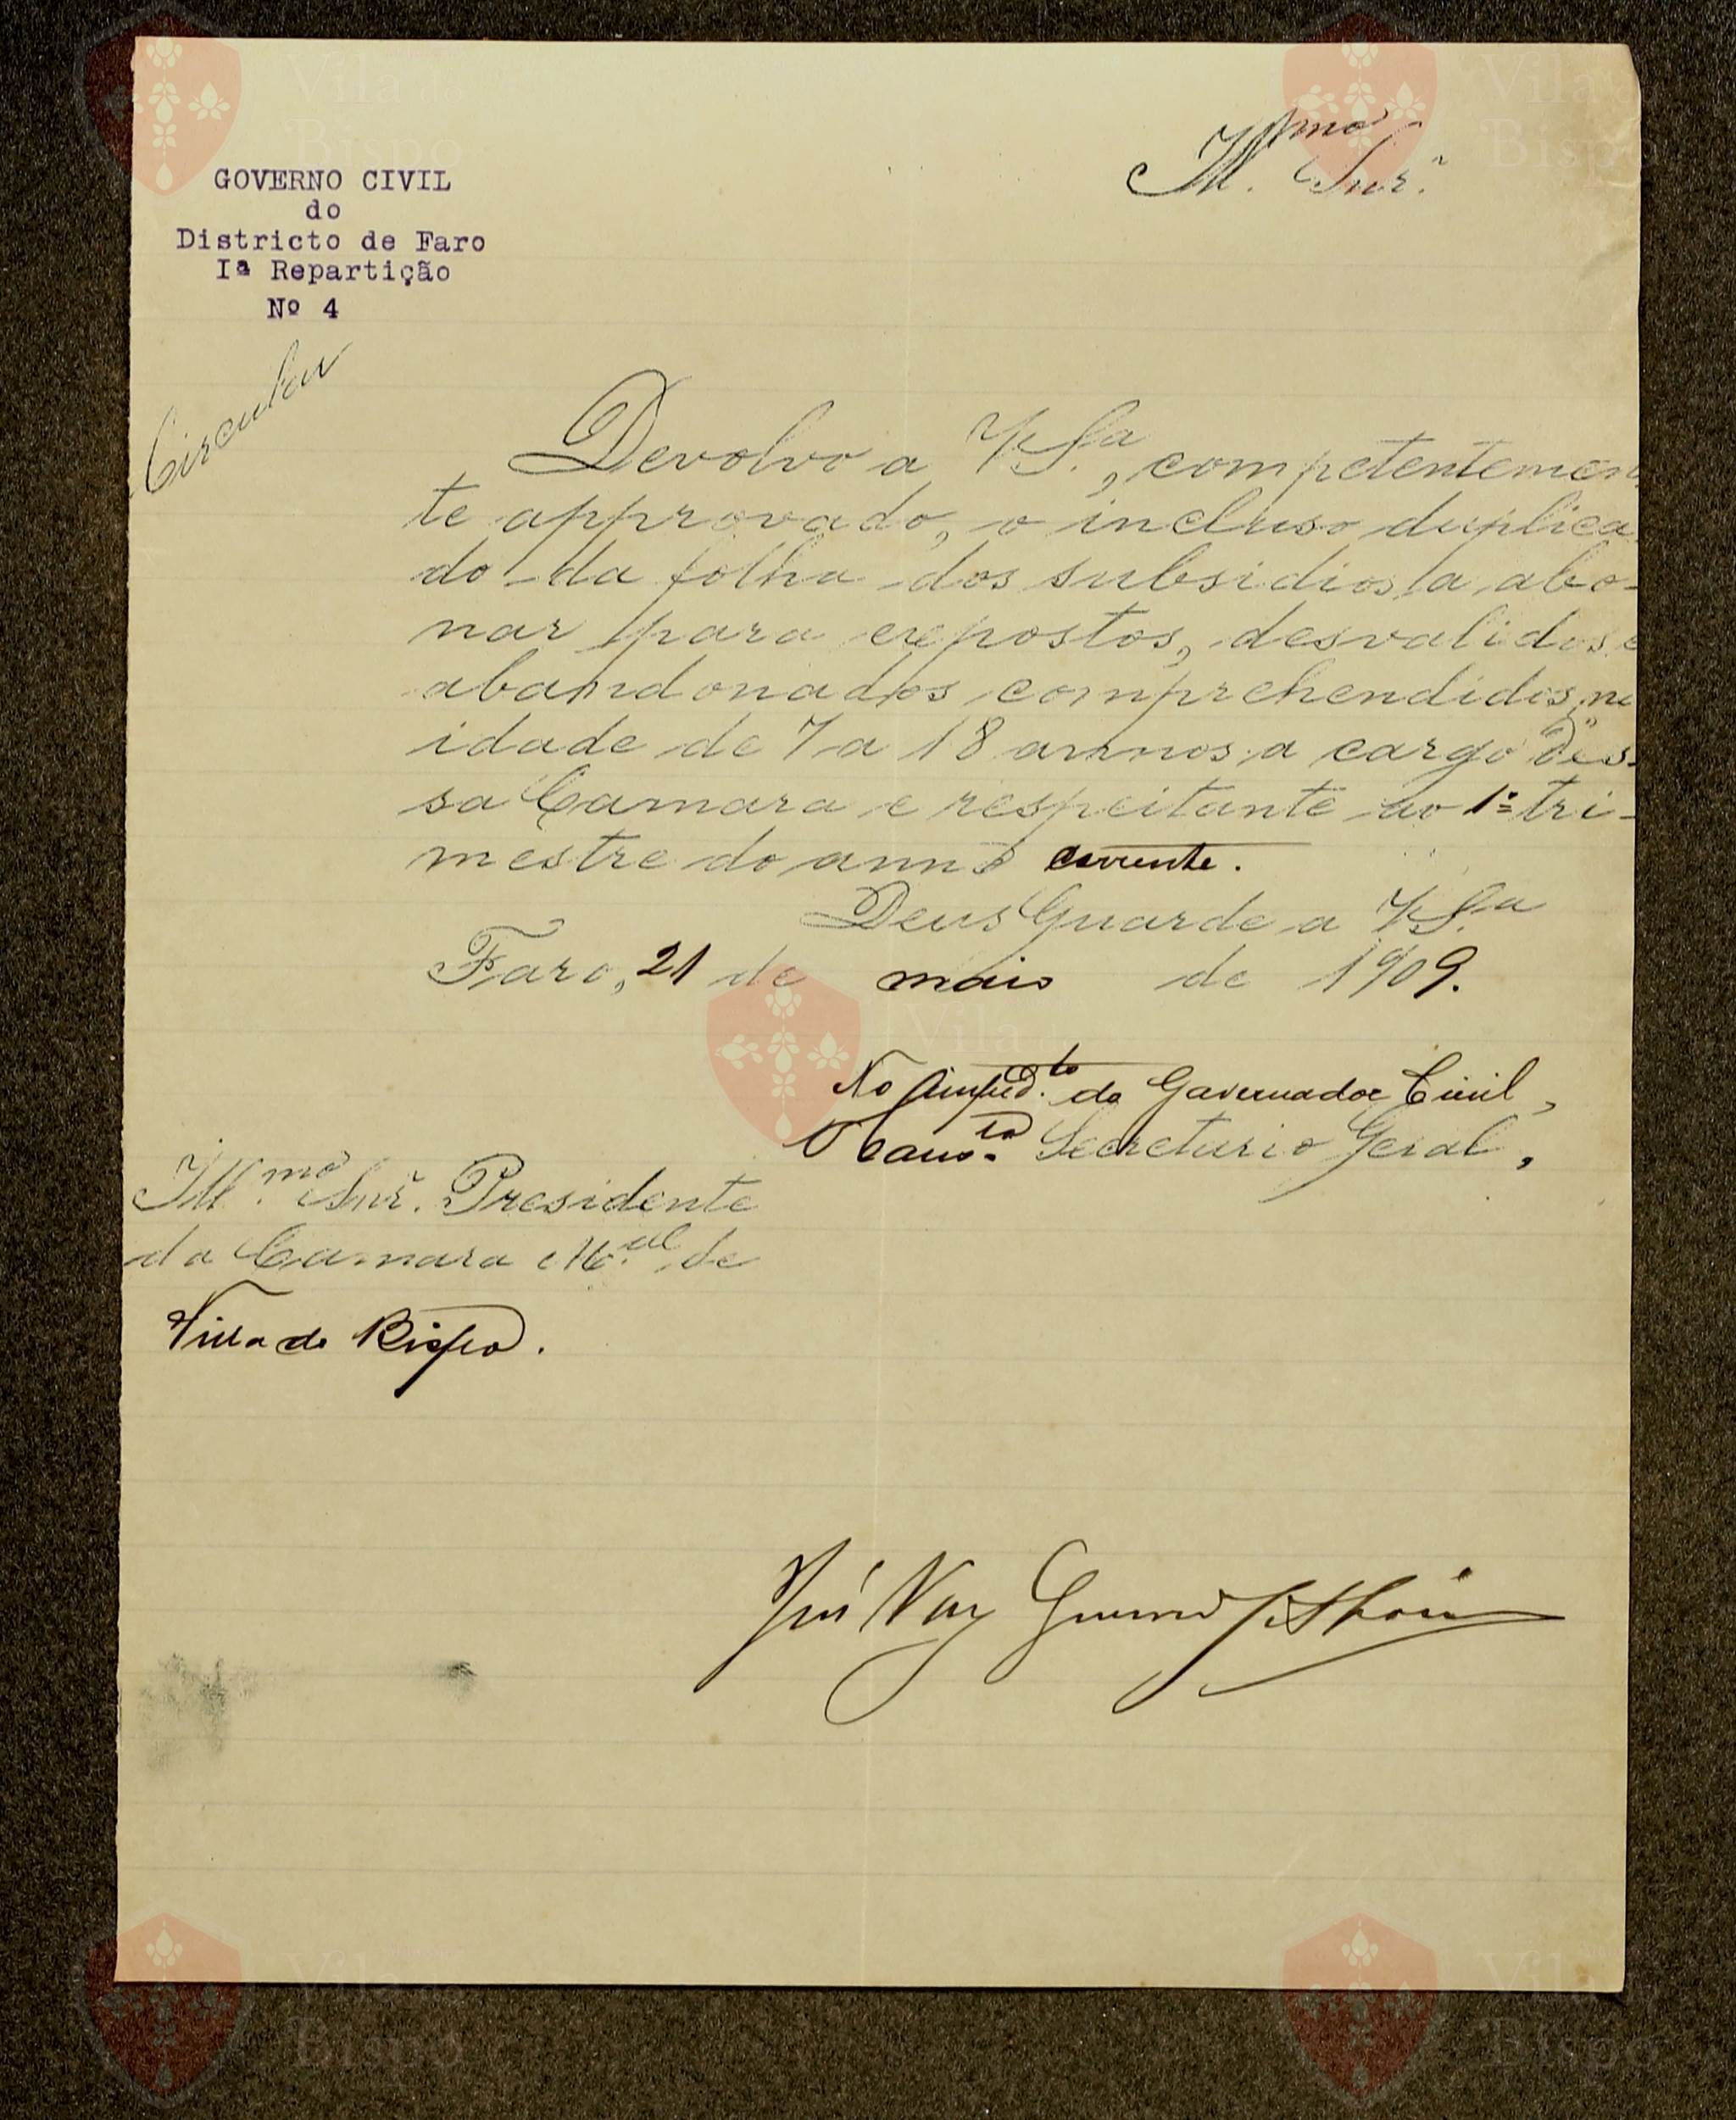 GOVERNO CIVIL
do
Districto de Faro
Iª Repartição
Nº 4
Circular
Ill.mo Snr.
Devolvo a V. S.ª, competentemen
te approvado, o incluso duplica
do da folha dos subsidios a abo-
nar para expostos, desvalidos e
abandonados comprehendidos na
idade de 7 a 18 annos a cargo des-
sa Camara e respeitante ao 1º tri-
mestre do anno corrente.
Deus Guarde a V. S.ª
Faro, 21 de maio de 1909.
No impedto do Governador Civil,
O Secretario Geral,
Ill.mo Snr. Presidente
da Camara M.al de
Villa do Bispo.
José Vaz Guerreiro
Vila do
Bispo
Vila do
Bispo
Vila do
Vila do
Bispo
Vila do
Bispo